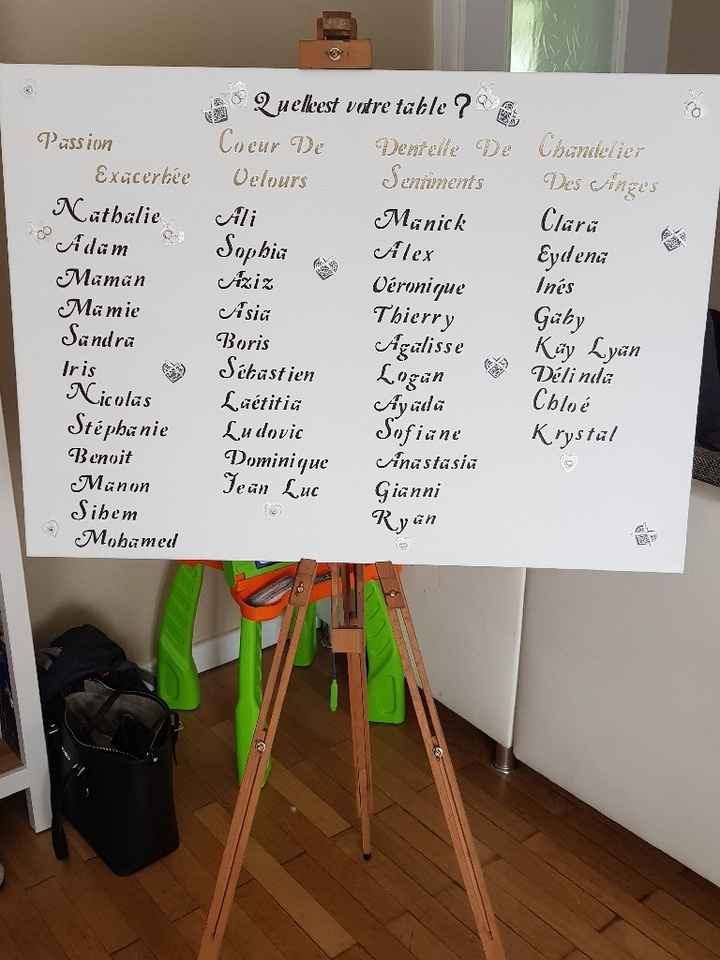 Quelleest votre table ?
Passion
Exacerbée
Nathalie
Adam
Maman
Mamie
Sandra
Iris
Nicolas
Stéphanie
Benoit
Manon
Sihem
Mohamed
Coeur De
Velours
Ali
Sophia
Aziz
Asia
Boris
Sébastien
Laétitia
Ludovic
Dominique
Jean Luc
Dentelle De
Sentiments
Manick
Alex
Véronique
Thierry
Agalisse
Logan
Ayada
Sofiane
Anastasia
Gianni
Ryan
Chandelier
Des Anges
Clara
Eydena
Inés
Gaby
Kay Lyan
Délinda
Chloé
Krystal